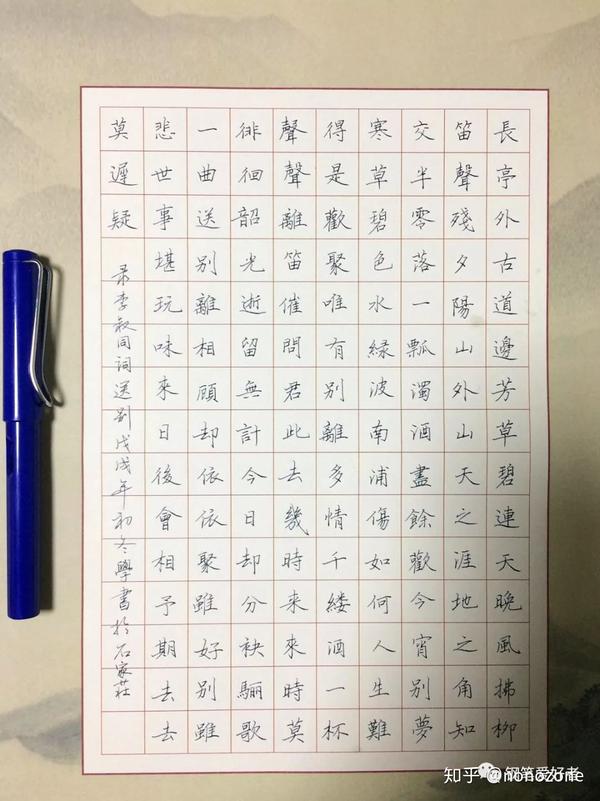 長亭外古道邊芳草碧連天晚風拂柳
笛聲殘夕陽山外山天之涯地之角知
交半零落一瓢濁酒盡餘歡今宵別夢
寒草碧色水緑波南浦傷如何人生難
得是歡聚唯有別離多情千縷酒一杯
聲聲離笛催問君此去幾時來來時莫
徘徊韶光逝留無計今日却分袂驪歌
一曲送別離相顧却依依聚雖好別雖
悲世事堪玩味來日後會相予期去去
莫遲疑
录李叔同詞送别戊戌年初冬學書於石家莊
钢笔爱好者
知乎 @nonozone